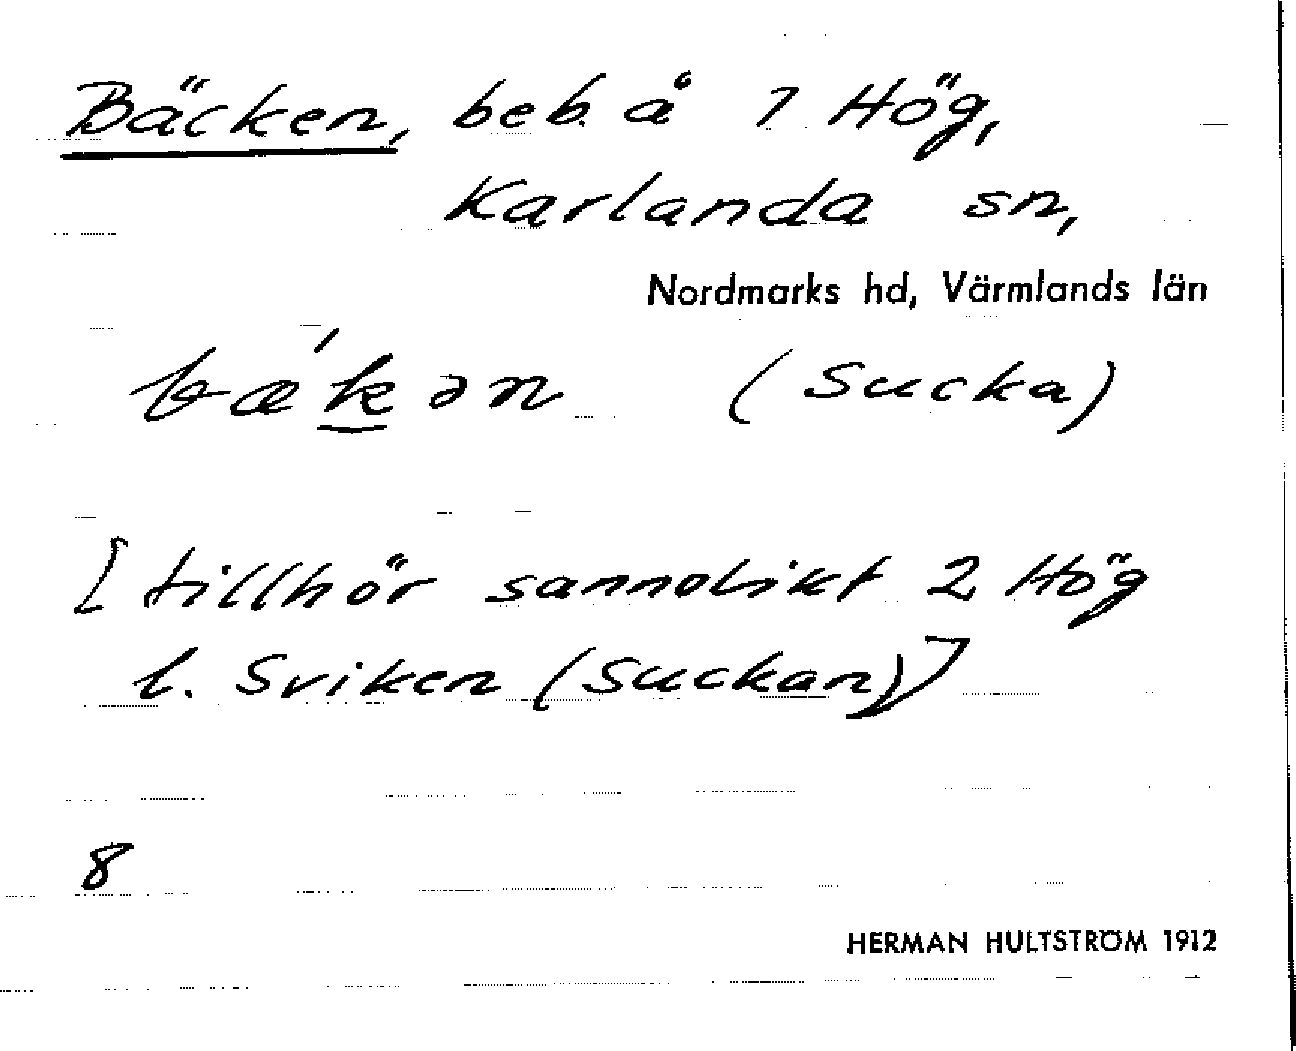 Bäcken, beb. å 1 Hög,
Karlanda sn,
Nordmarks hd, Värmlands län
bæ´kən (Sucka)
[tillhör sannolikt 2 Hög
l. Sviken (Suckan)]
8
HERMAN HULTSTRÖM 1912